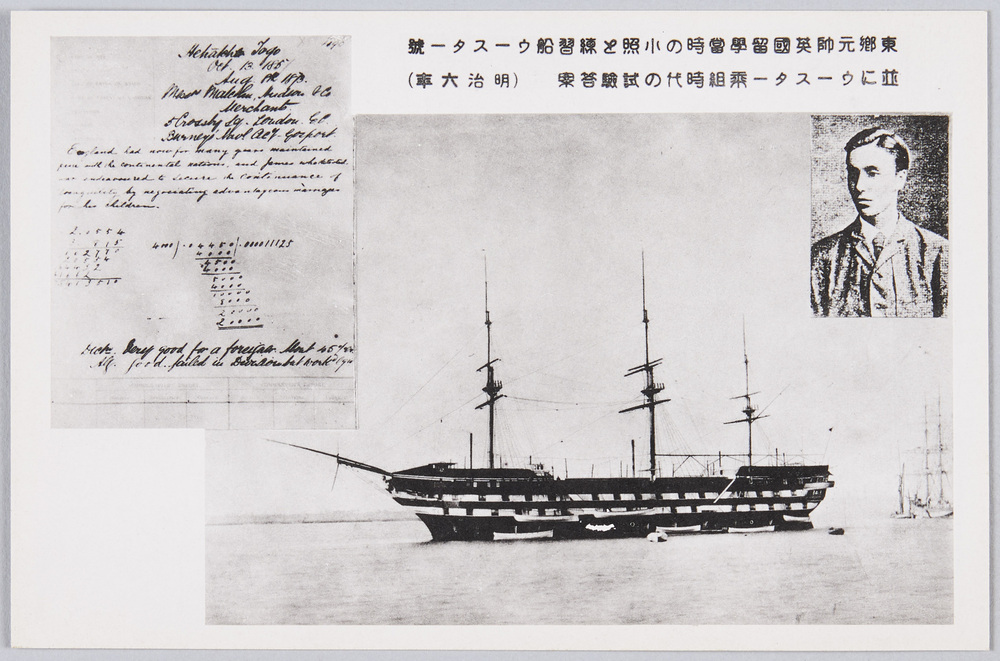 東郷元帥英國留學當時の小照と練習船ウースター號
並にウースター乘組時代の試驗答案 (明治六年)
Togo
Oct. 13. 185
Aug 1873.
Messrs Malcolm, Hudson & Co
Merchants
5 Crosby Sq. London. E.C
Burney's Gosport
England had now for many years maintained
peace with the continental nations, and James
endeavoured to secure the continuance of
tranquility by negociating advantageous marriages
for his children.
4000).04450(.00001125
4000
4500
4000
5000
4000
10000
8000
20000
20000
Very good for a foreigner.
good. failed in Division but work